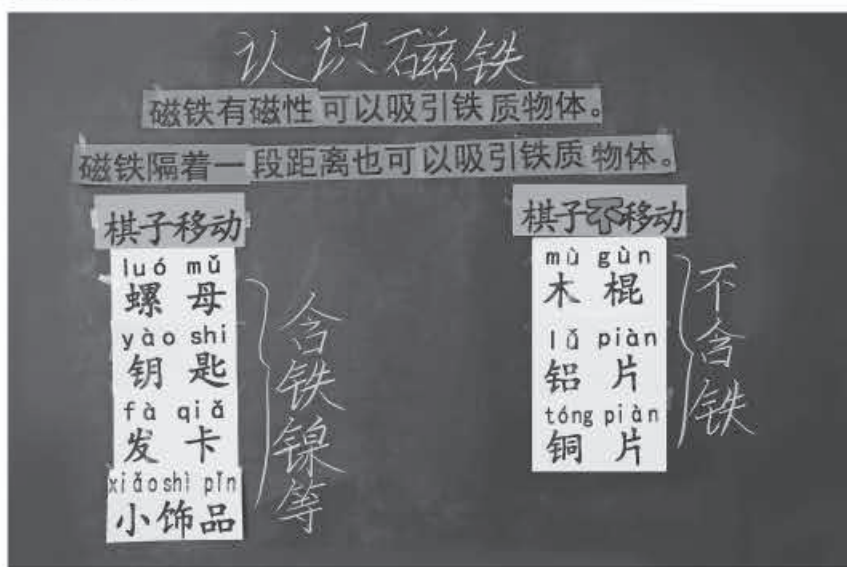 认识磁铁
磁铁有磁性可以吸引铁质物体。
磁铁隔着一段距离也可以吸引铁质物体。
棋子移动
luó mǔ
螺母
yào shi
钥匙
fà qiǎ
发卡
xiǎoshì pǐn
小饰品
含铁镍等
棋子不移动
mù gùn
木棍
lǚ piàn
铝片
tóng piàn
铜片
不含铁